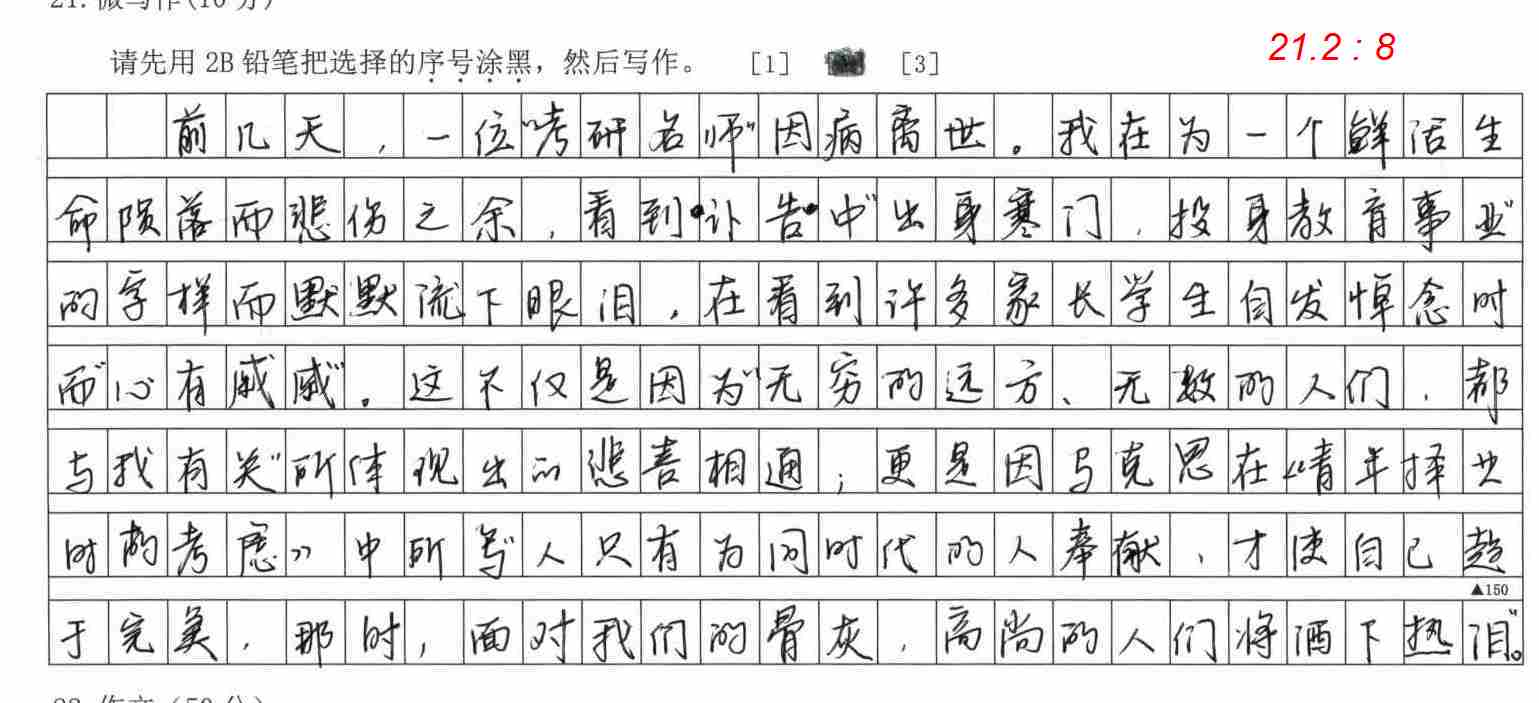 21. 微写作(10 分)
请先用 2B 铅笔把选择的序号涂黑，然后写作。 [1] [3]
21.2 : 8
前几天，一位“考研名师”因病离世。我在为一个鲜活生
命陨落而悲伤之余，看到“讣告”中“出身寒门，投身教育事业”
的字样而默默流下眼泪，在看到许多家长学生自发悼念时
而“心有戚戚”。这不仅是因为“无穷的远方、无数的人们，都
与我有关”所体现出的悲喜相通；更是因马克思在《青年择业
时的考虑》中所写“人只有为同时代的人奉献，才使自己趋
▲150
于完美，那时，面对我们的骨灰，高尚的人们将洒下热泪”。